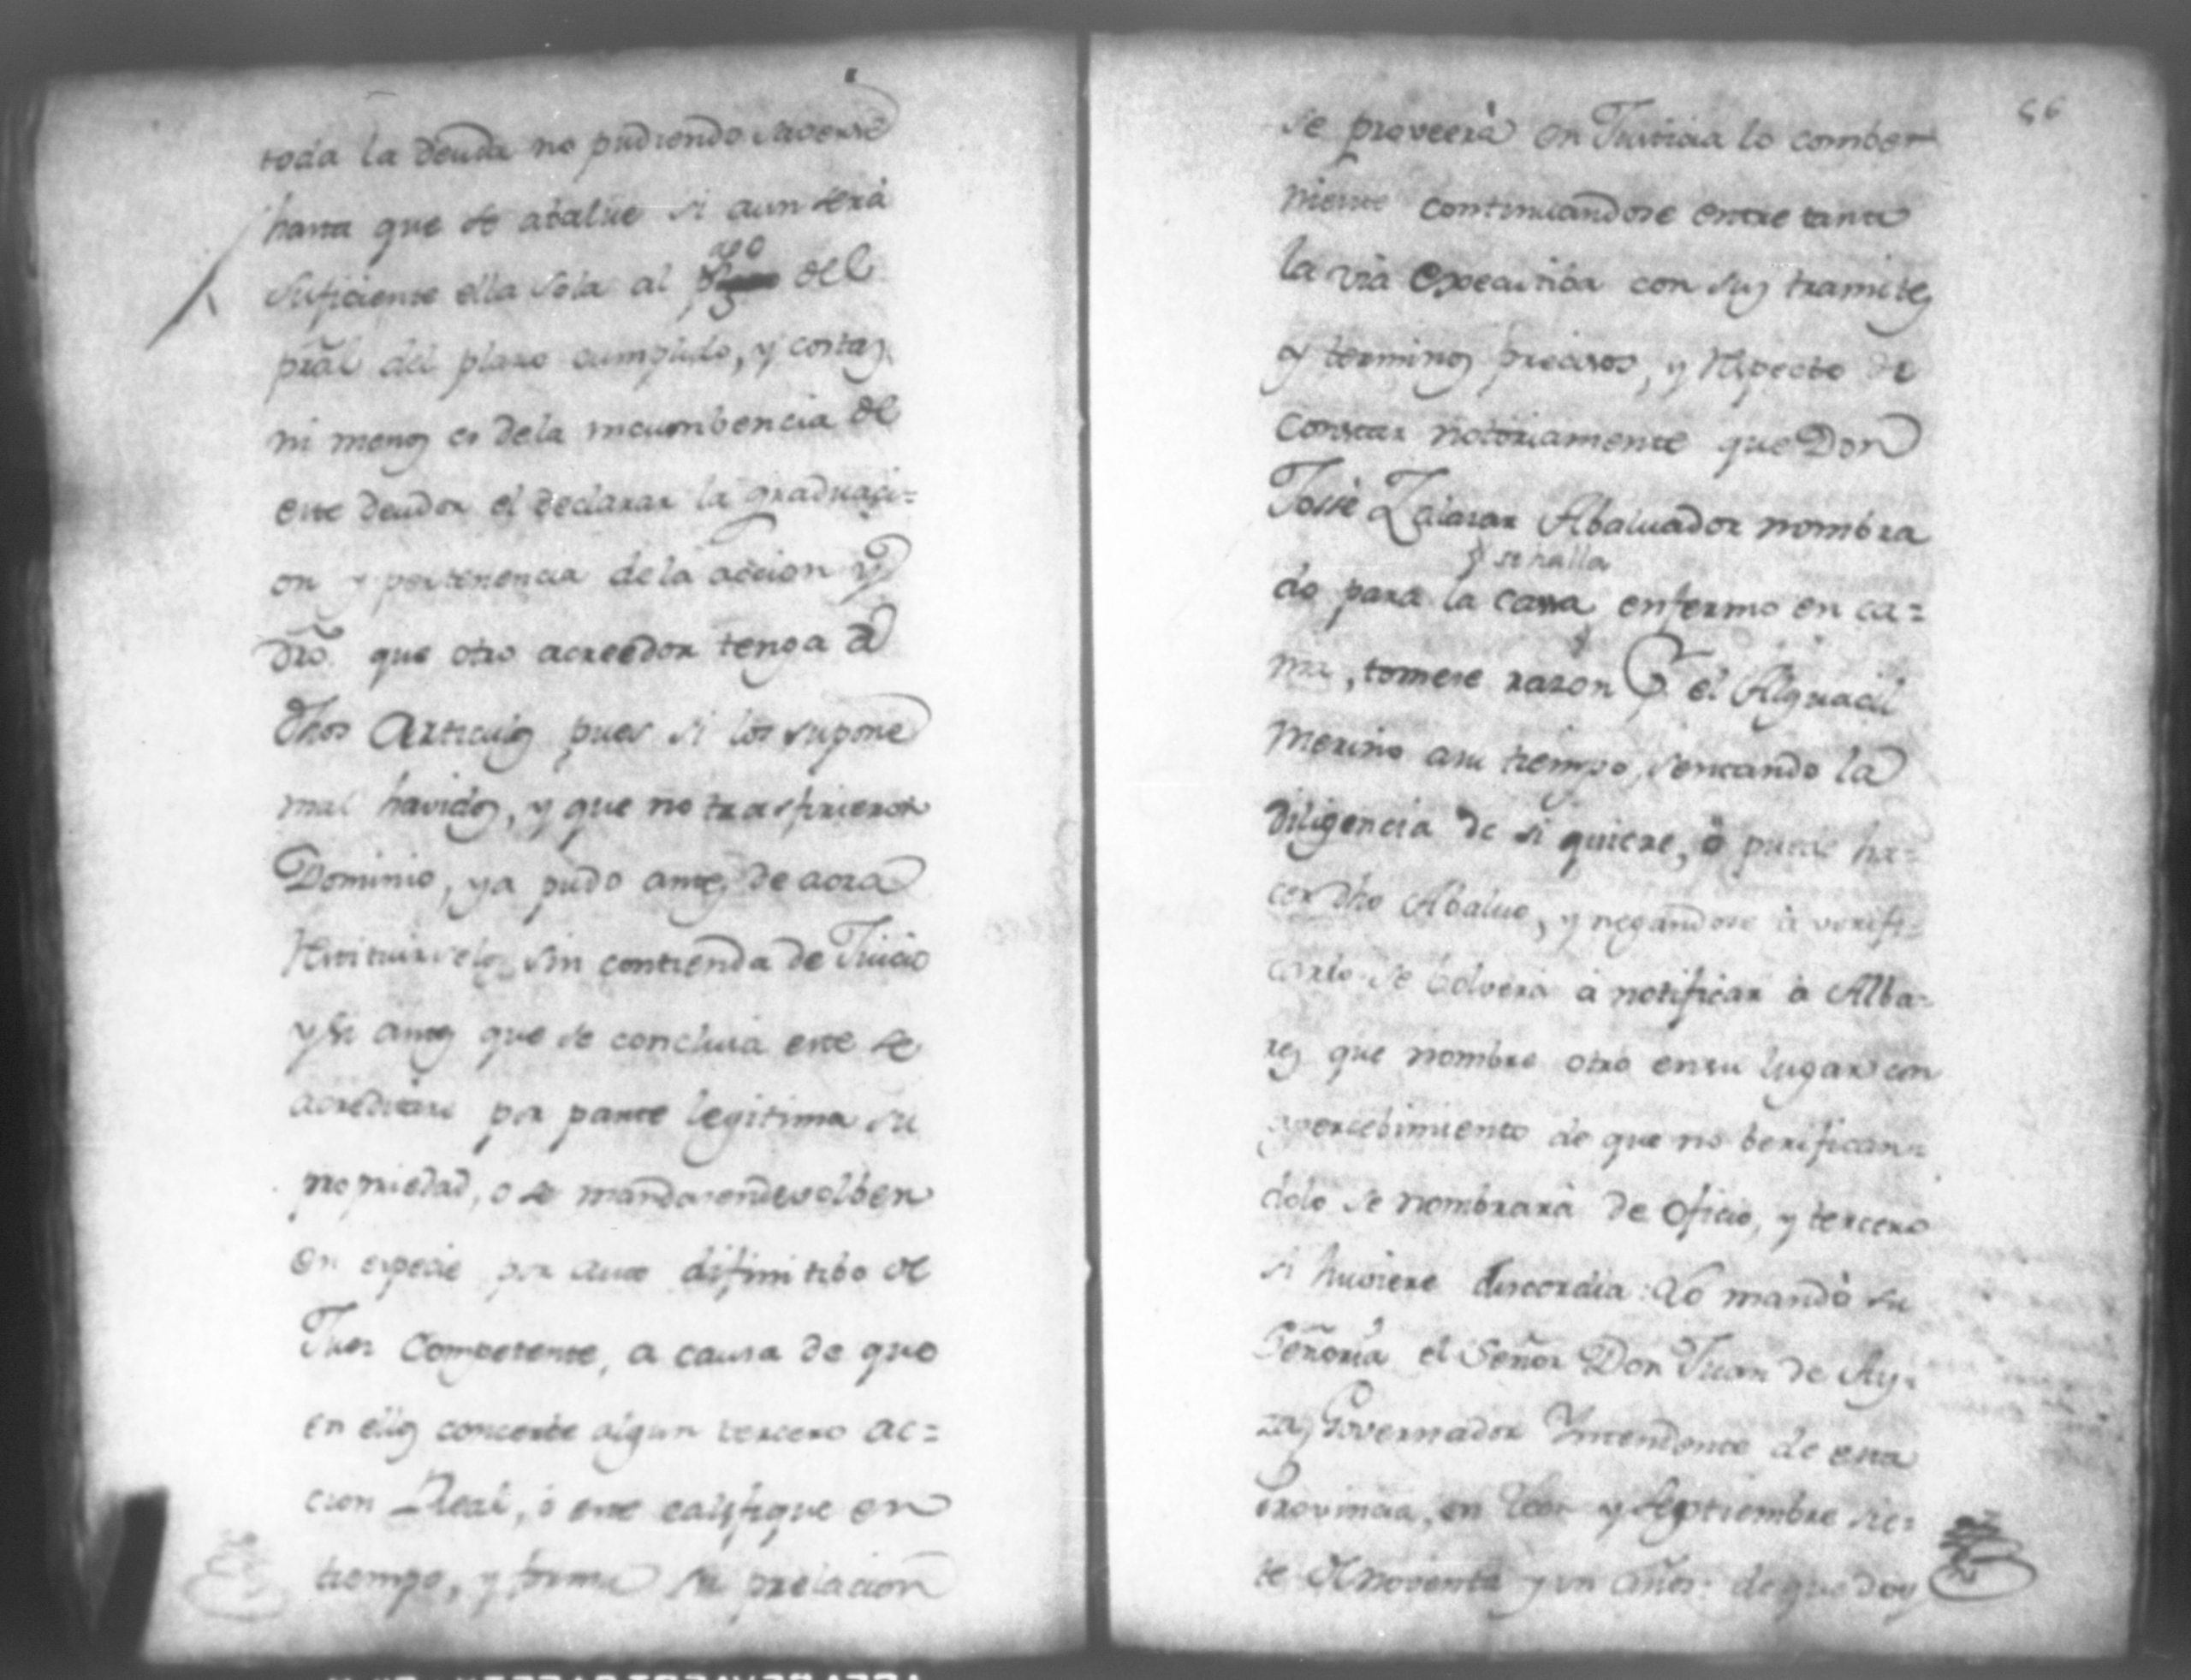 toda la deuda no pudiendo saverse
hasta que se abalue si aun será
suficiente ella sola al pago del
prãl del plazo cumplido, y costas,
ni menos es dela incumbencia de
este deudor el declarar la graduaci=
on y pertenencia dela accion y
dr̃o que otro acreedor tenga a
dhos Articulos pues si los supone
mal havidos, y que no trasfirieron
Dominio, ya pudo antes de aora
restituirselos sin contienda de Juicio
y si antes que se concluia este se
acreditare por parte legitima su
propriedad, o se mandasen devolber
en especie por auto difinitibo de
Juez Competente, a causa de que
en ellos concerte algun tercero ac=
cion Real, ó este calefique en
tiempo, y forma su prelacion
56
se proveerá en Justicia lo combe=
niente continuandose entre tanto
la via executiba con sus tramites
y terminos precisos, y respecto de
constar notoriamente que Don
Josse Zalazar Abaluador nombra
se halla
do para la casa enfermo en ca=
ma, tomese razon P.r el Alguacil
Merino asu tiempo, sentando la
diligencia de si quiere, ó puede ha=
cer dho Abaluo, y negandose á verifi=
carlo se bolverá á notificar á Alba=
rez que nombre otro ensu lugar con
apercebimiento de que no berifican=
dolo se nombrará de oficio, y tercero
si huviere discordia: Lo mandó su
Señoria el Señor Don Juan de Ay=
za, Governador Yntendente de esta
Provincia, en Leon y Septiembre sie=
te de noventa y un años: de que doy